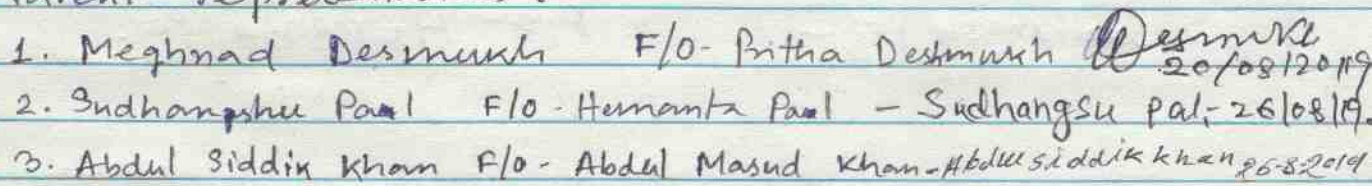 1. Meghnad Desmukh F/O- Pritha Deshmukh Desmukh 20/08/2019
2. Sudhangshu Paul F/O - Hemanta Paul - Sudhangsu pal,- 26/08/19.
3. Abdul Siddik Khan F/O- Abdul Masud Khan - Abdul siddik khan 26-8-2019